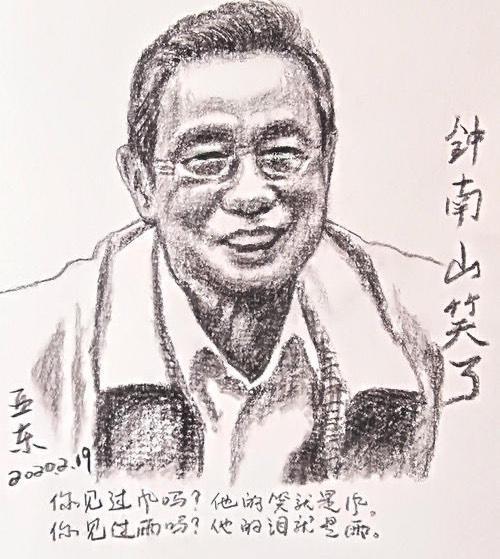 鈡南山笑了
亚东
2020.2.19
你见过风吗？他的笑就是风。
你见过雨吗？他的泪就是雨。